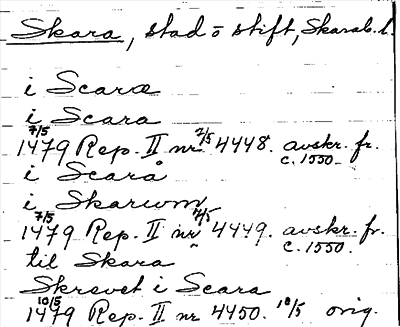 Skara, stad o stift, Skarab. l.
i Scaræ
i Scara
7/5 1479 Rep. II nr 2/5 4448. avskr. fr. c. 1550.
i Scara
i Skarwm
7/5 1479 Rep. II nr 4449. avskr. fr. c. 1550.
til Skara
Skrevet i Scara
10/5 1479 Rep. II nr 4450. 10/5 orig.